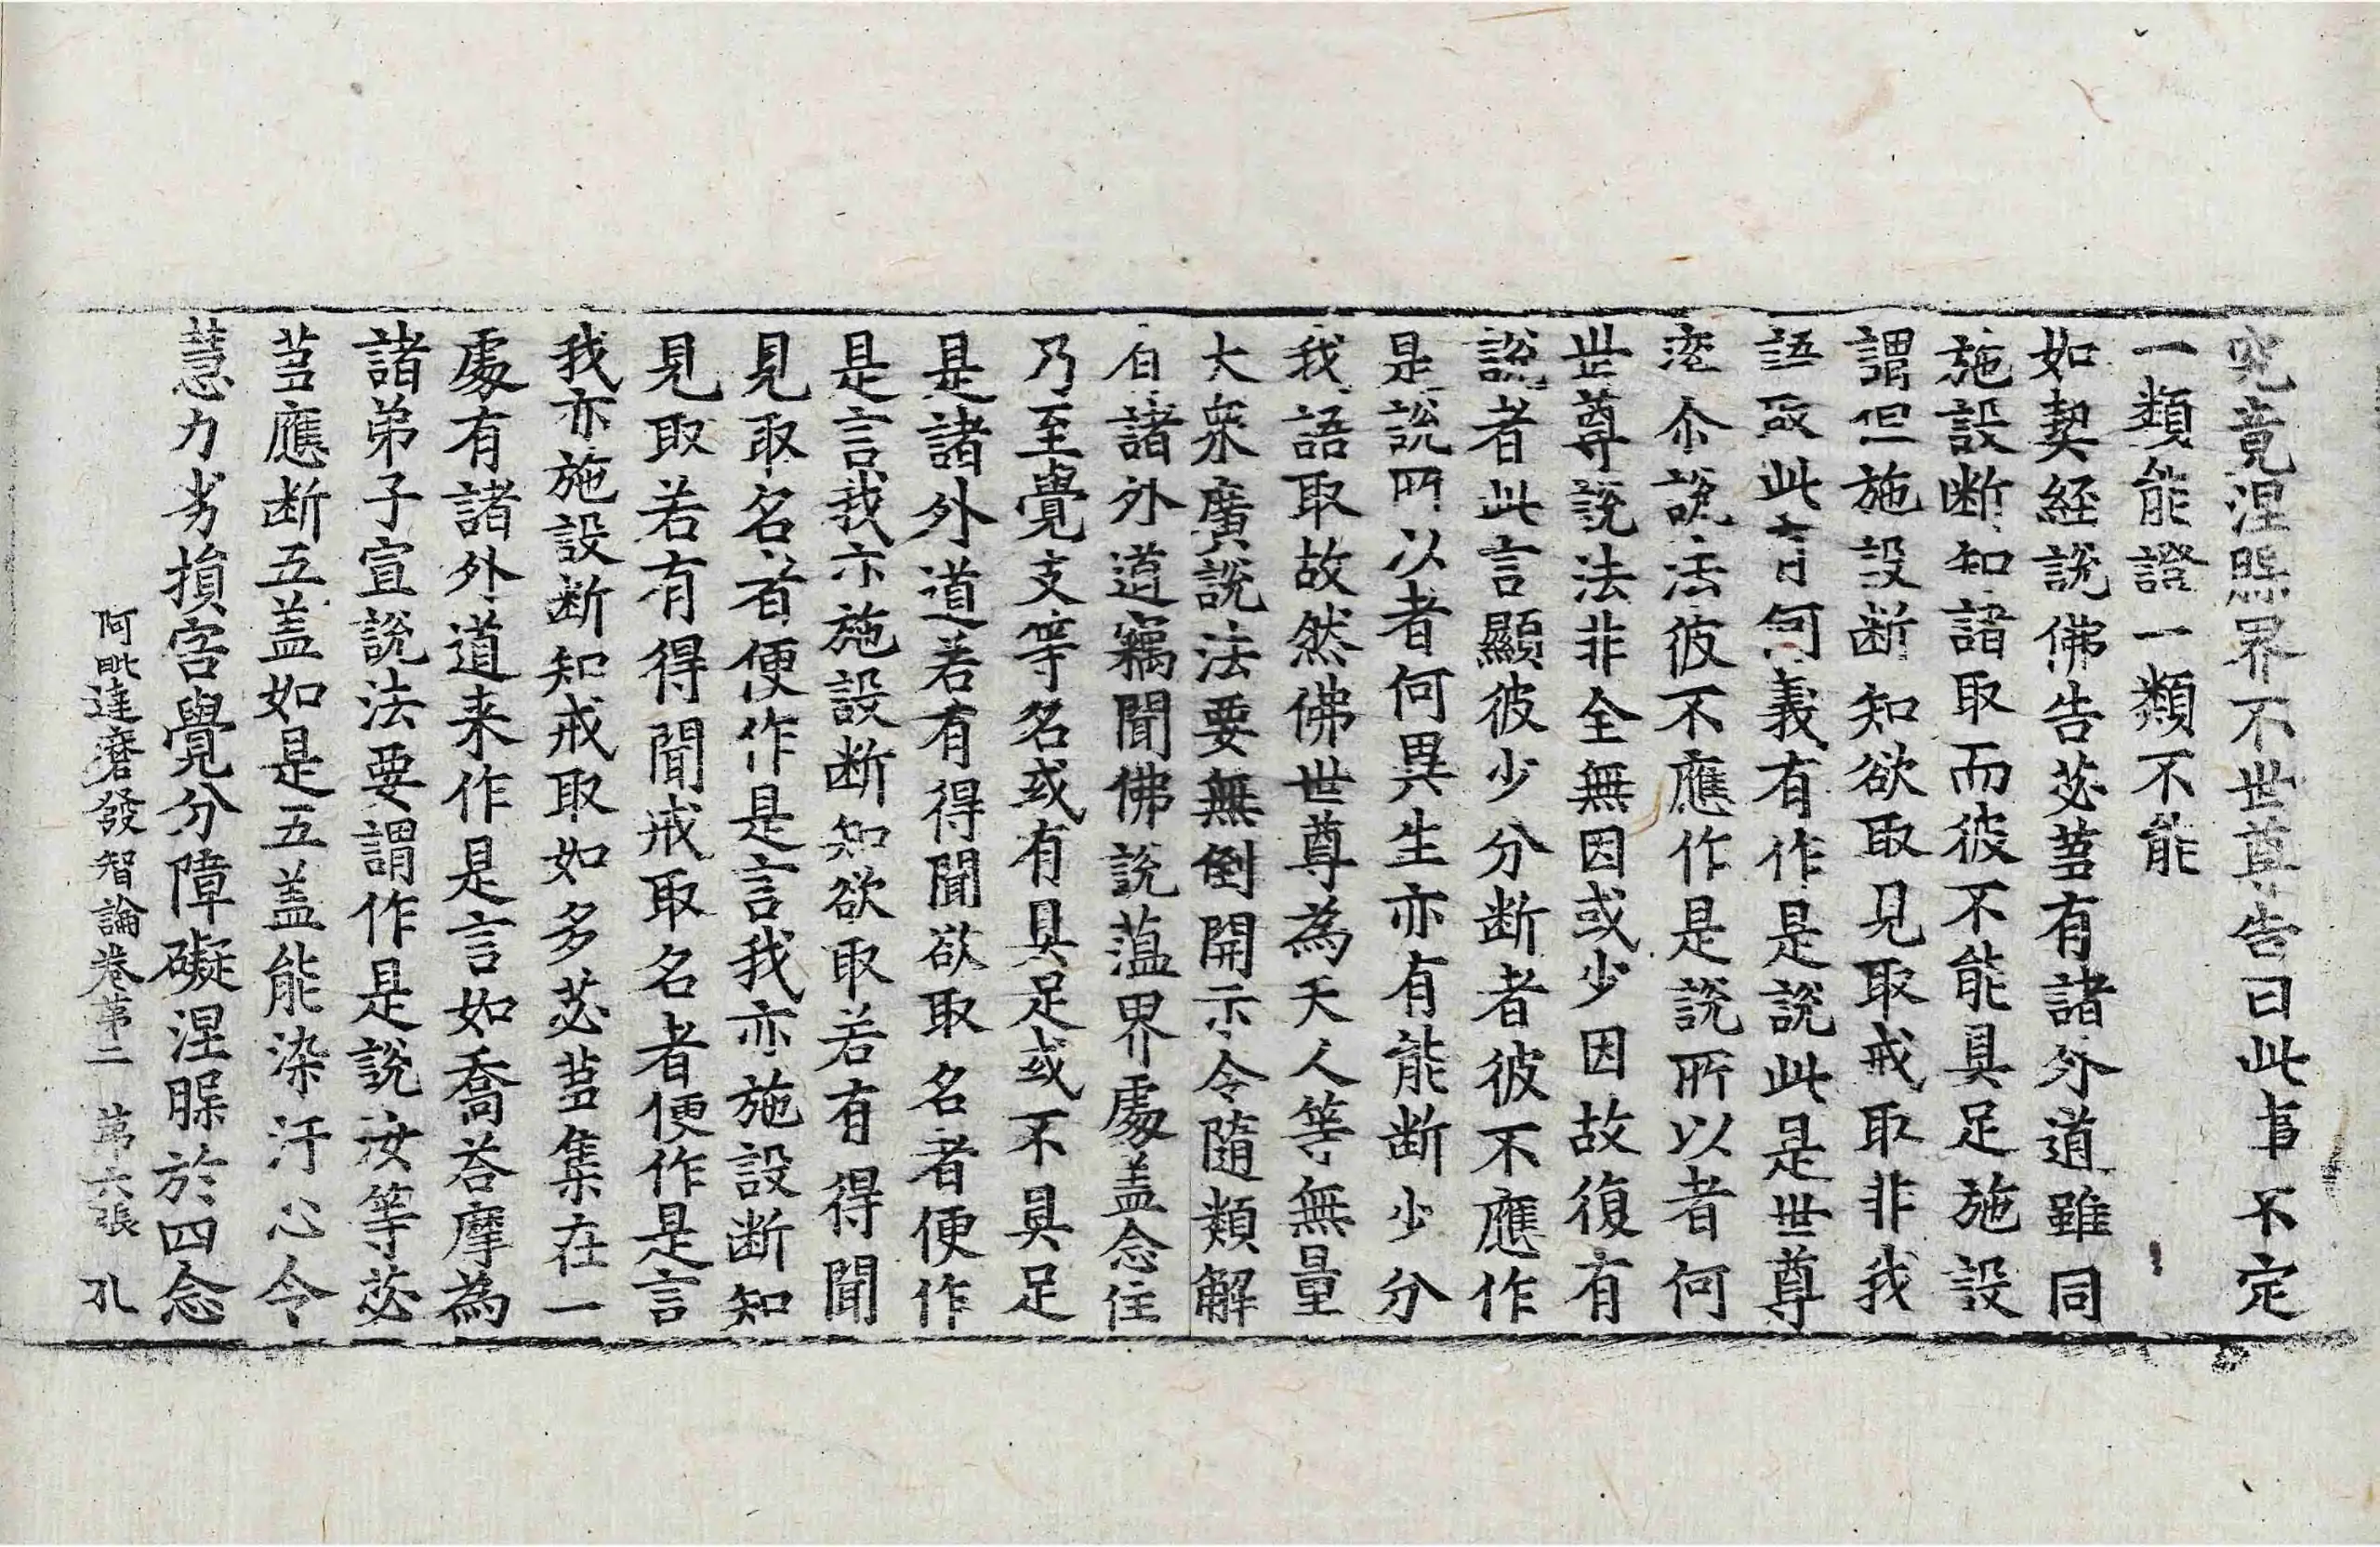 究竟涅槃界不世尊告曰此事不定
一類能證一類不能
如契經說佛告苾蒭有諸外道雖同
施設断知諸取而彼不能具足施設
謂但施設断知欲取見取戒取非我
語取此言何義有作是說此是世尊
淀尒說法彼不應作是說所以者何
世尊說法非全無因或少因故復有
說者此言顯彼少分断者彼不應作
是說所以者何異生亦有能断少分
我語取故然佛世尊為天人等無量
大衆廣說法要無倒開示令隨類解
有諸外道竊聞佛說蕰界處盖念住
乃至覺支等名或有具足或不具足
是諸外道若有得聞欲取名者便作
是言我亦施設断知欲取若有得聞
見取名者便作是言我亦施設断知
見取若有得聞戒取名者便作是言
我亦施設断知戒取如多苾蒭集在一
處有諸外道来作是言如喬荅摩為
諸弟子宣說法要謂作是說汝等苾
蒭應断五盖如是五盖能染汙心令
慧力劣損害覺分障礙涅槃於四念
阿毗達磨發智論卷第二 第六張 孔